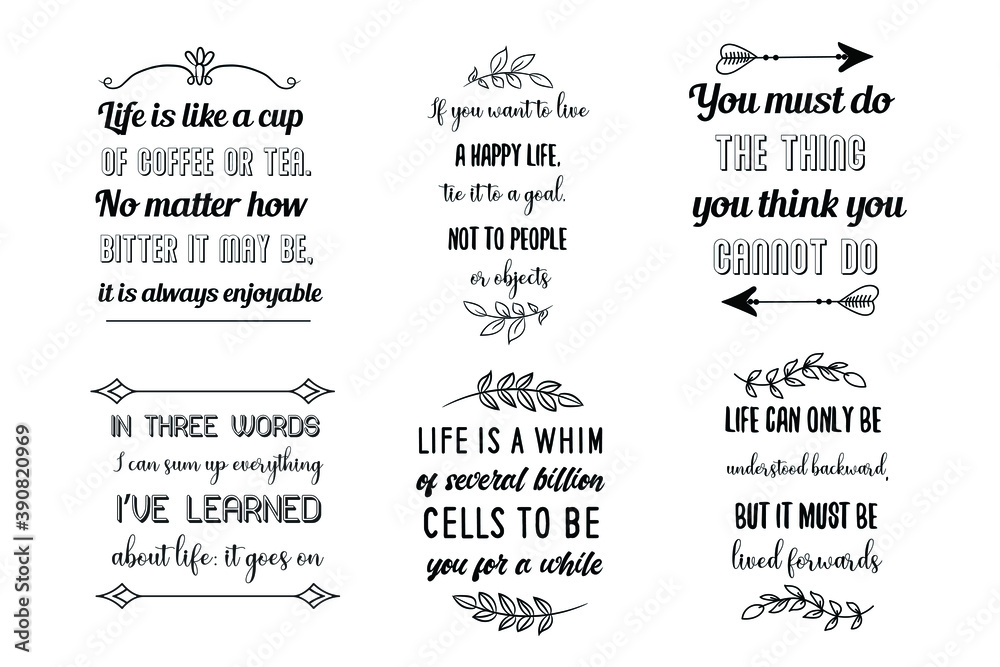 Life is like a cup
OF COFFEE OR TEA.
No matter how
BITTER IT MAY BE,
it is always enjoyable
If you want to live
A HAPPY LIFE,
tie it to a goal.
NOT TO PEOPLE
or objects
You must do
THE THING
you think you
CANNOT DO
IN THREE WORDS
I can sum up everything
I'VE LEARNED
about life: it goes on
LIFE IS A WHIM
of several billion
CELLS TO BE
you for a while
LIFE CAN ONLY BE
understood backward,
BUT IT MUST BE
lived forwards
Adobe Stock | #390820969
Adobe Stock